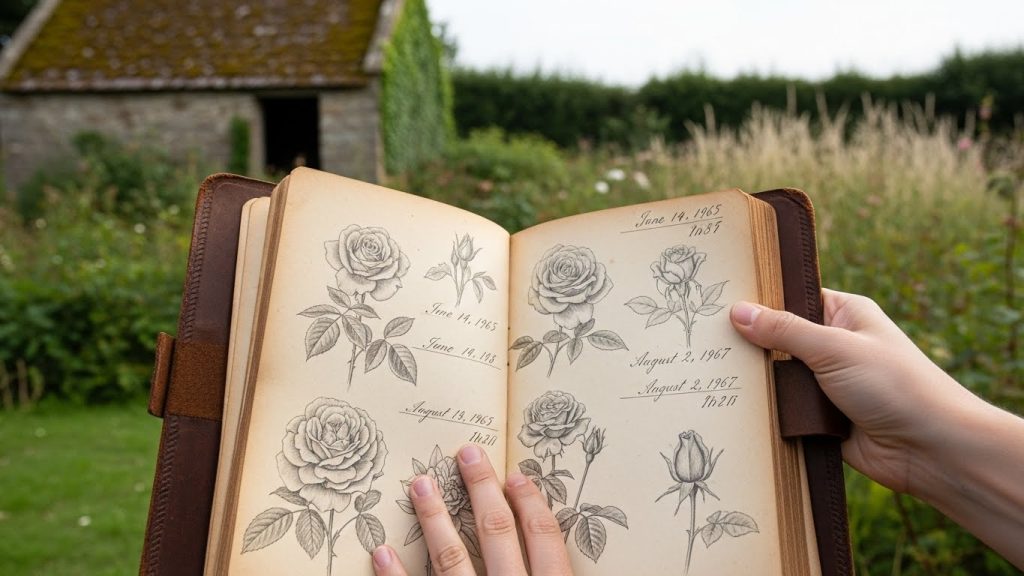 June 14, 1965
June 14, 198
August 13, 1965
June 14, 1965
August 2, 1967
August 2, 1967